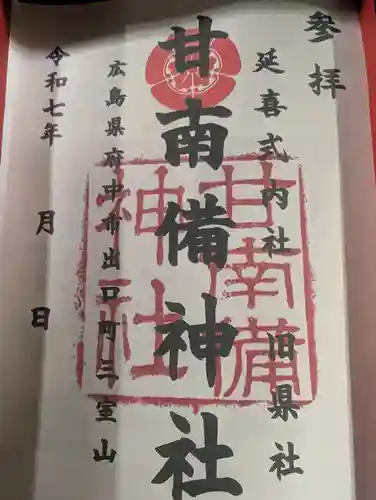 參拝
延喜式内社 旧県社
甘南備神社
甘南備
神社
広島県府中市出口町三室山
令和七年 月 日